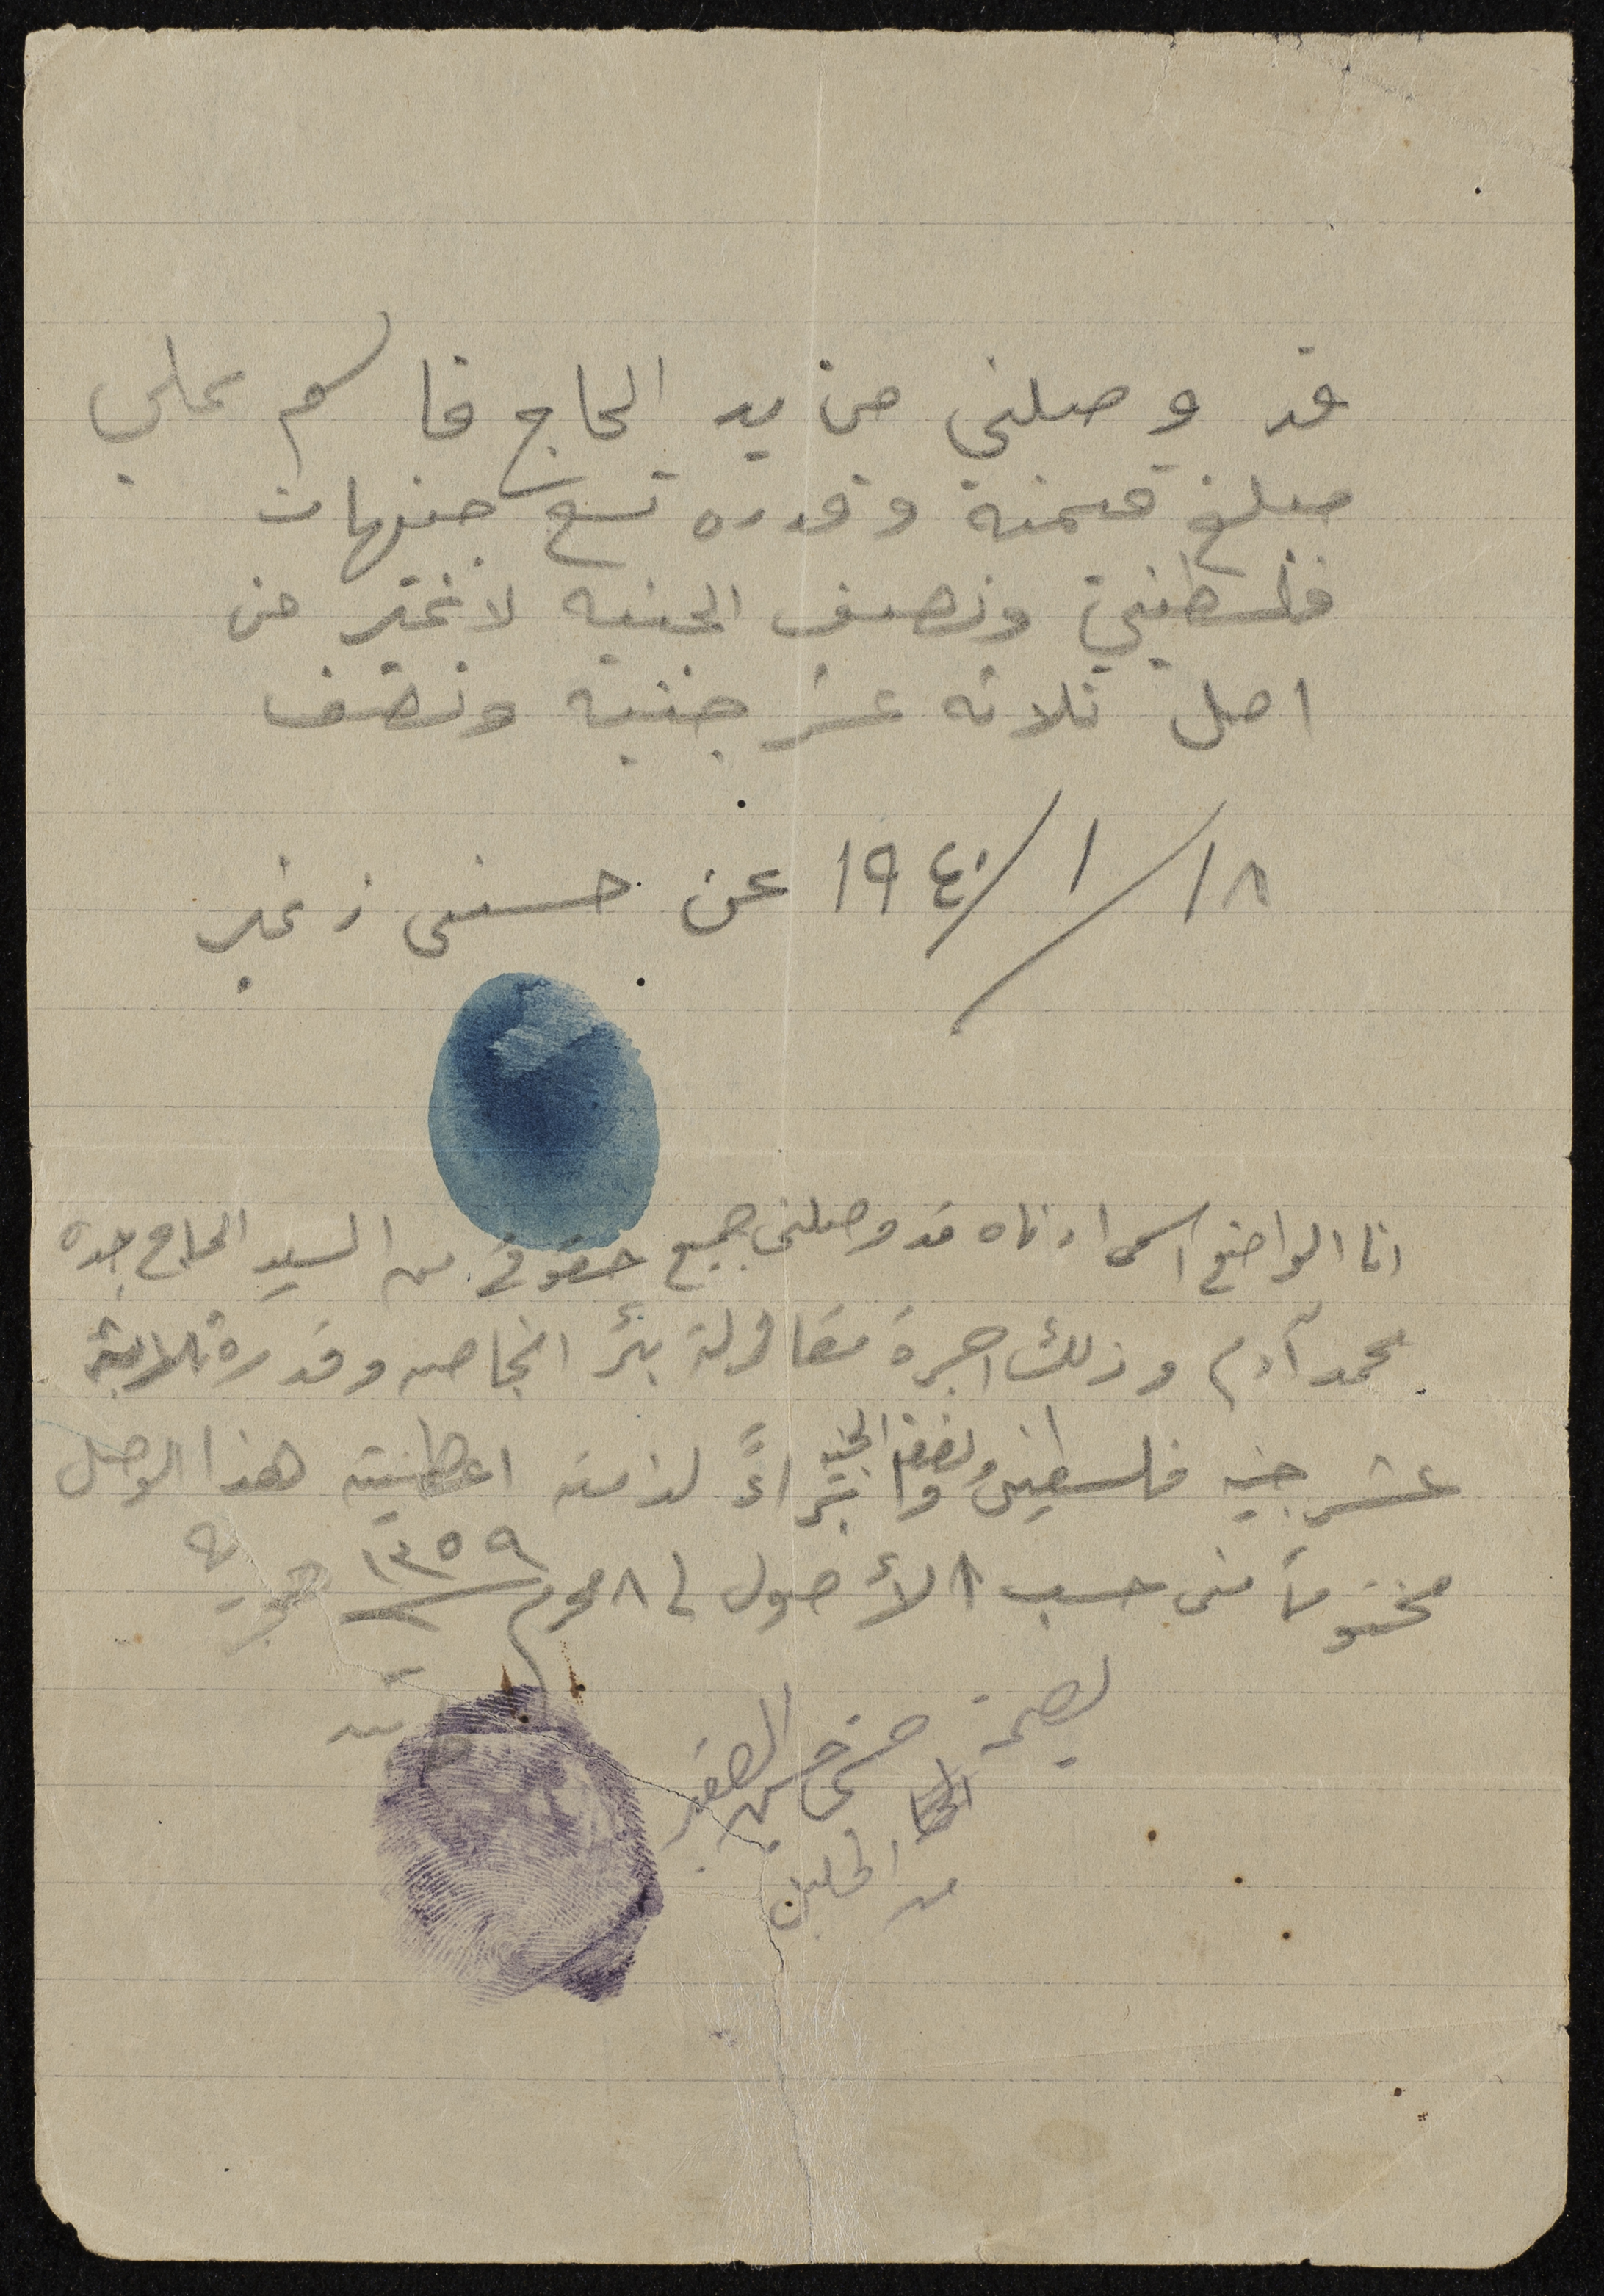 قد وصلني من يد الحاج قاسم علي
مبلغ قيمته وقدره تسع جنيهات
فلسطيني ونصف الجنيه لا غير من
اصل ثلاثه عشر جنيه ونصف
١٨/١/١٩٤٠ عن حسني زغير
انا الواضع اسمي ادناه قد وصلني جميع حقوقي من السيد الحاج جده
محمد آدم وذلك اجرة مقاولة بئر انجاصه وقدره ثلاثة
عشر جنيه فلسطيني ونصف الجنيه وابراءً لذمته اعطيته هذا الوصل
مختوماً مني حسب الأصول في ٨ محرم ١٣٥٩ هجريه
بصمة حسني حسن الصغير
من الخليل